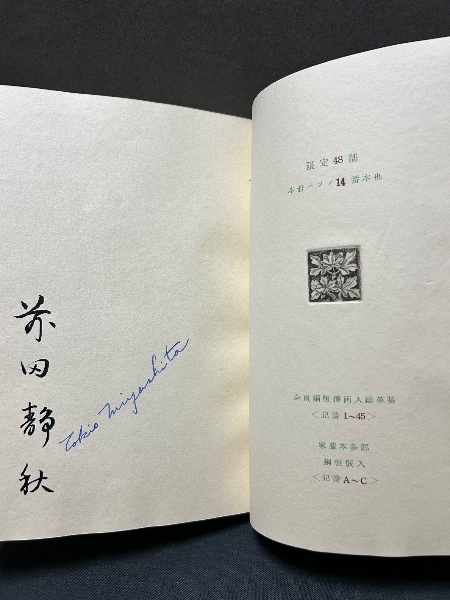 前田静秋
Tokio Miyashita
限定48部
本書ハソノ14番本也
全頁銅版挿画入総革装
<記番1～45>
家蔵本参部
銅版嵌入
<記番A～C>